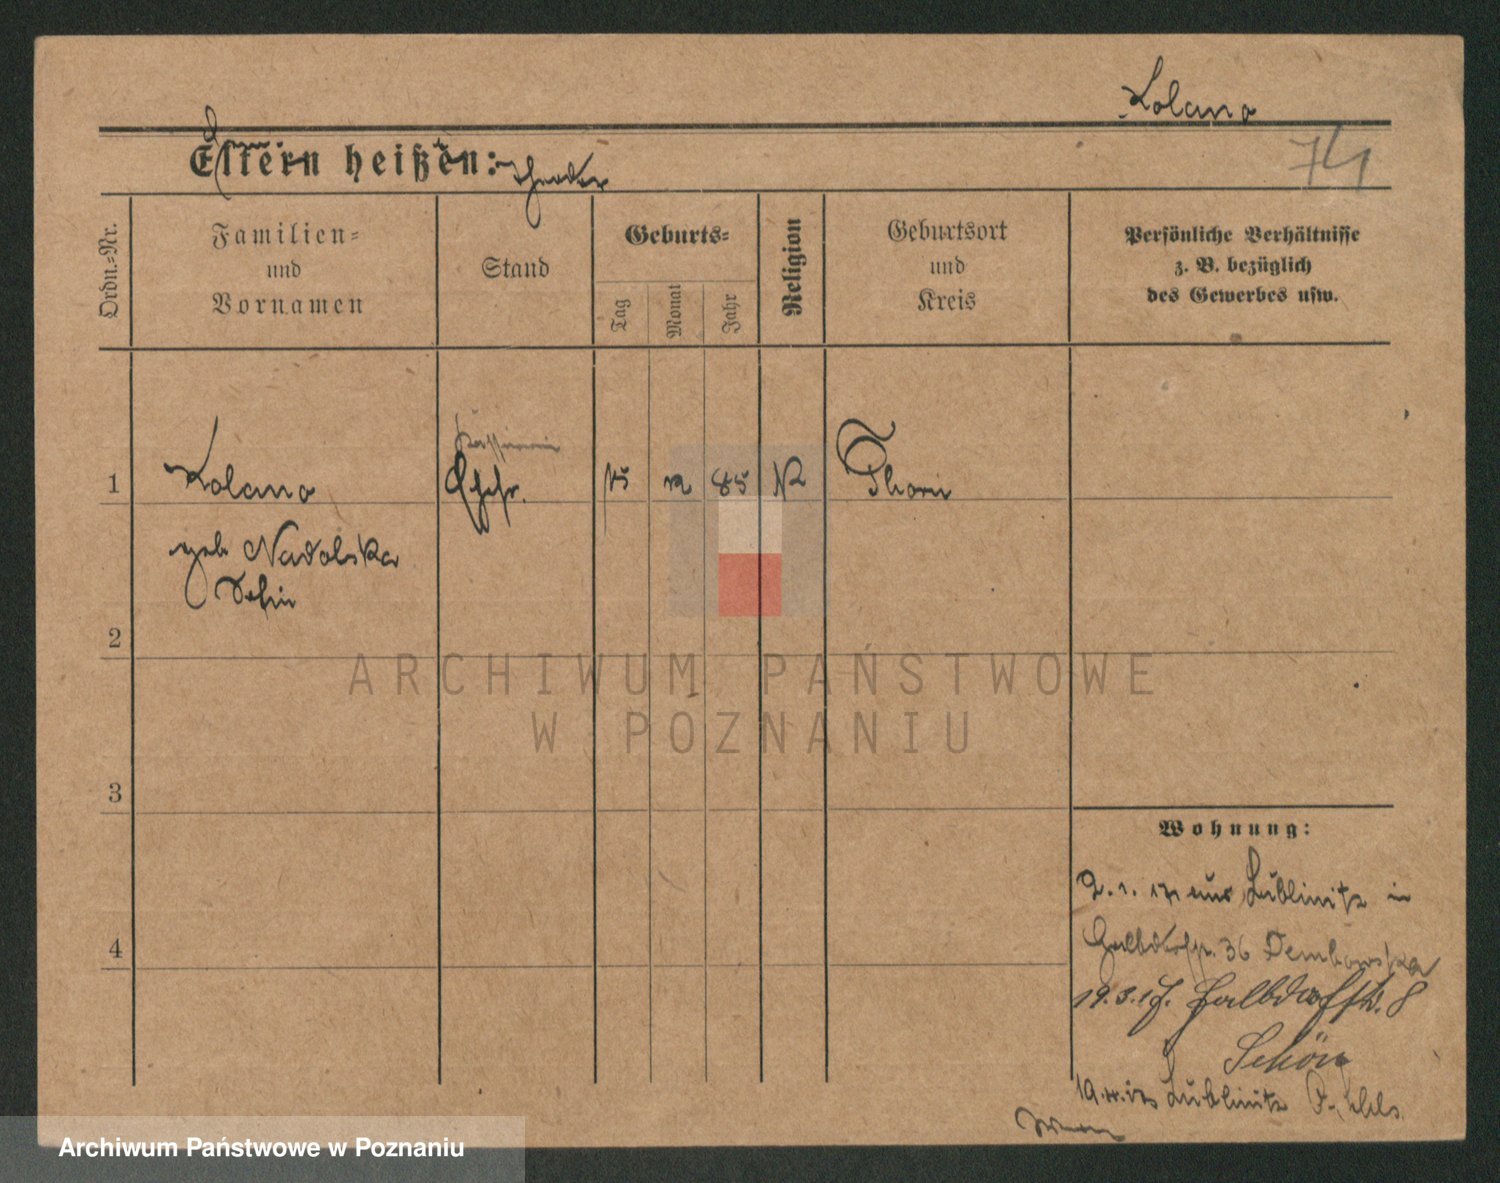 Kolano
Eltern heißen: Theodor
74
Ordn.-Nr.
Familien-
und
Vornamen
Stand
Geburts-
Tag
Monat
Jahr
Religion
Geburtsort
und
Kreis
Persönliche Verhältnisse
z. B. bezüglich
des Gewerbes usw.
1
Kolano
Ehefr.
15
12
85
Thorn
geb Nadolska
2
3
4
Wohnung:
2. 1. 17 aus Lublinitz in
Halbdorfstr. 36 Dembowska
19.3.17. Halbdorfstr. 8
Schön
Lublinitz
ARCHIWUM PAŃSTWOWE
W POZNANIU
Archiwum Państwowe w Poznaniu